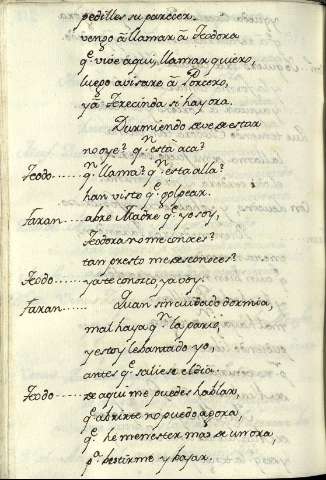 pedilles su parecer.
vengo â llamar â Teodora
q.e vive aqui, llamar quiero,
luego avisarè â Porcero,
yâ Terecinda si hay ora.
Durmiendo se ve se estar
no oye? q.n està acà?
Teodo..... q.n llama? q.n està alla?
han visto q.e golpear.
Faxan..... abre Madre q.e yo soy,
Teodora no me conoces?
tan presto me desconoces?
Teodo..... ya te conosco ya voy.
Faxan..... Quan sin cuidado dormia,
mal haya q.n la pariò,
y estoy lebantado yo,
antes q.e saliese el dia.
Teodo..... de aqui me puedes hablar,
q.e abrirte no puedo agora,
q.e he menester mas de un ora,
p.a bestirme y bajar.